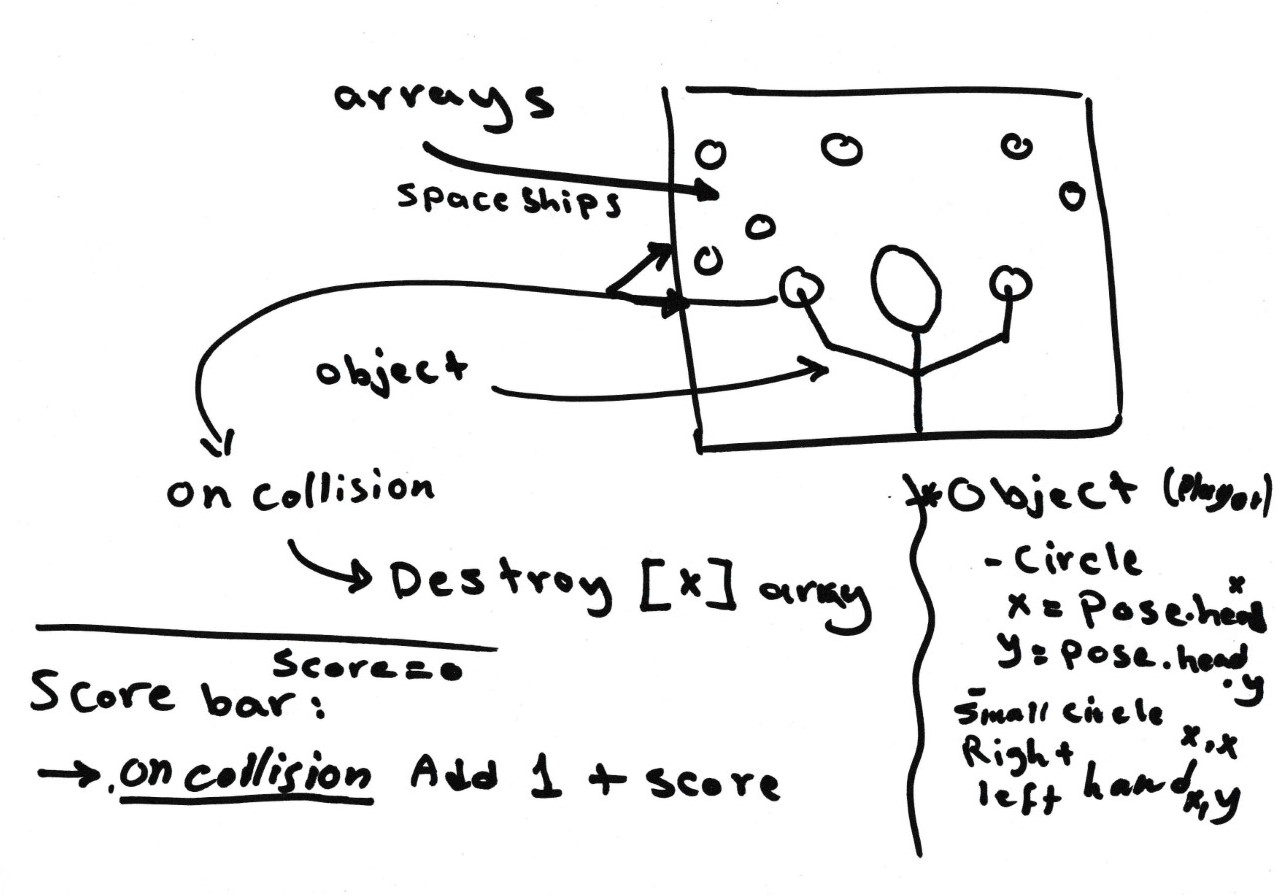 arrays
spaceships
object
on collision
Destroy [x] array
score=0
Score bar:
→ on collision Add 1 + score
*Object (Player)
- Circle
x = Pose.head x
y = pose.head.y
- Small circle
Right x,x
left hand x,y